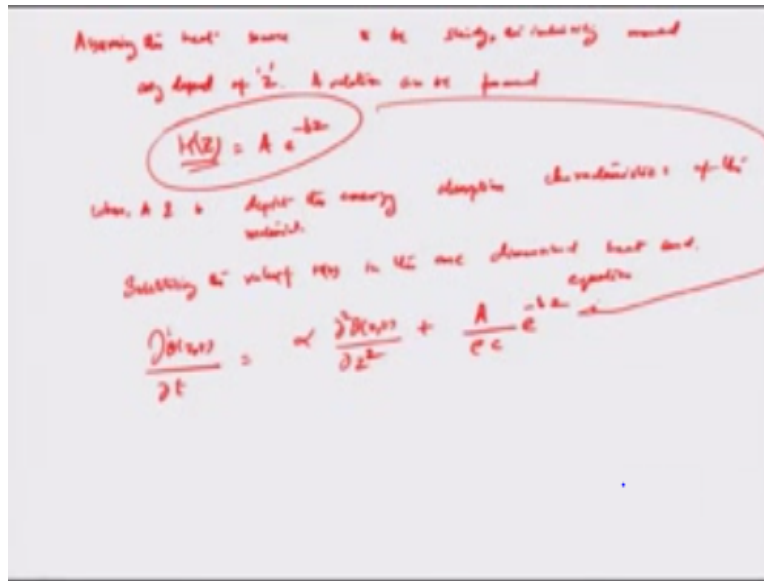 Assuming the heat source to be steady, the intensity
only depend of 'z'. A relation can be framed
H(z) = A e^{-bz}
where, A & b depict the energy absorption characteristics of the
material.
Substituting the value of H(z) in the one dimensional heat cond.
equation
∂θ(z,t)/∂t = α ∂²θ(z,t)/∂z² + A/ρc e^{-bz}